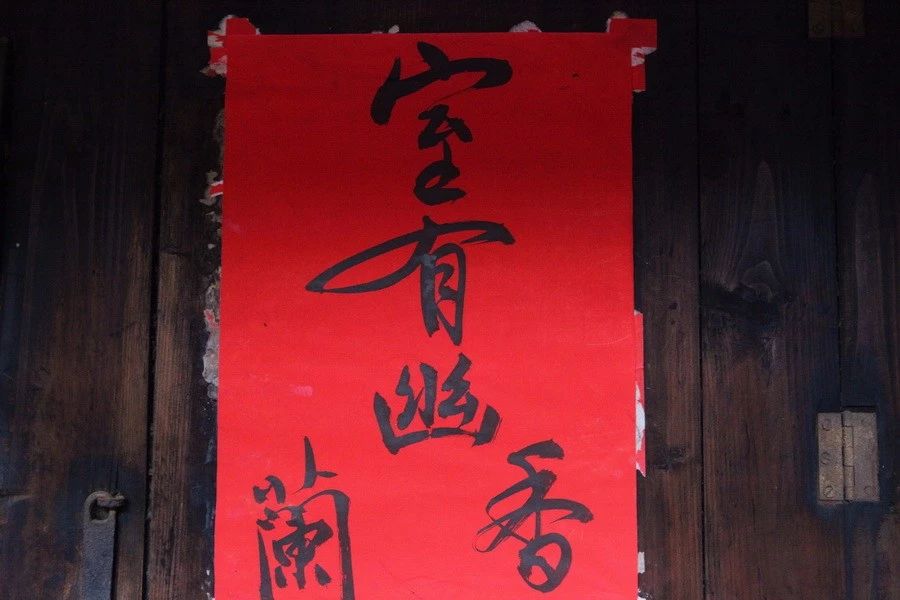 室有幽
蘭
香